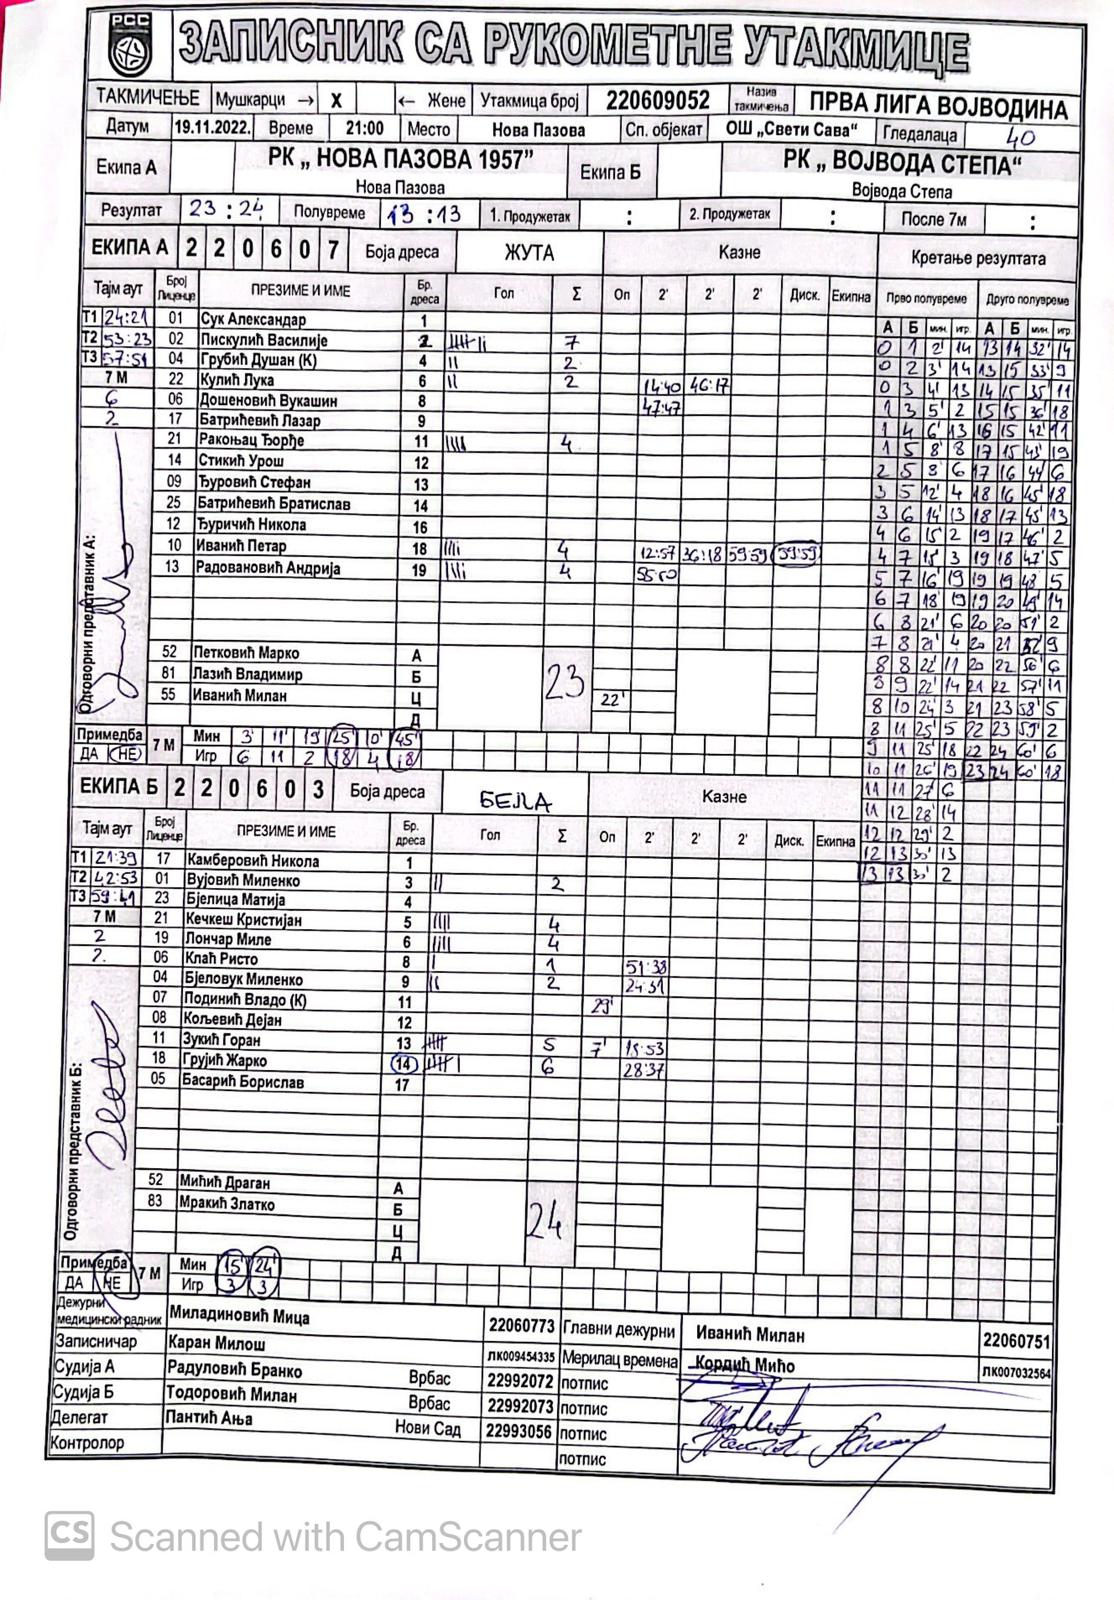 РСС
ЗАПИСНИК СА РУКОМЕТНЕ УТАКМИЦЕ
ТАКМИЧЕЊЕ Мушкарци → X ← Жене Утакмица број 220609052 Назив такмичења ПРВА ЛИГА ВОЈВОДИНА
Датум 19.11.2022. Време 21:00 Место Нова Пазова Сп. објекат ОШ „Свети Сава“ Гледалаца 40
Екипа А РК „ НОВА ПАЗОВА 1957” Нова Пазова Екипа Б РК „ ВОЈВОДА СТЕПА“ Војвода Степа
Резултат 23 : 24 Полувреме 13 : 13 1. Продужетак : 2. Продужетак : После 7м :
ЕКИПА А 2 2 0 6 0 7 Боја дреса ЖУТА Казне Кретање резултата
Тајм аут Број Лиценце ПРЕЗИМЕ И ИМЕ Бр. дреса Гол Σ Оп 2' 2' 2' Диск. Екипна Прво полувреме Друго полувреме
А Б мин. игр. А Б мин. игр.
Т1 24:21 01 Сук Александар 1
Т2 53:23 02 Пискулић Василије 2 7
Т3 57:51 04 Грубић Душан (К) 4 2
7 М 22 Кулић Лука 6 2 14:40 46:17
6 06 Дошеновић Вукашин 8 47:47
2 17 Батрићевић Лазар 9
21 Ракоњац Ђорђе 11 4
14 Стикић Урош 12
09 Ђуровић Стефан 13
25 Батрићевић Братислав 14
12 Ђуричић Никола 16
10 Иванић Петар 18 4 12:57 36:18 59:59 59:59
13 Радовановић Андрија 19 4
52 Петковић Марко А 23
81 Лазић Владимир Б
55 Иванић Милан Ц 22'
Д
Одговорни представник А:
0 1 2' 14 13 14 32' 14
0 2 3' 14 13 15 33' 9
0 3 4' 13 14 15 35' 11
1 3 5' 2 15 15 36' 18
1 4 6' 13 16 15 42' 11
1 5 8' 8 17 15 43' 19
2 5 9' 6 17 16 44' 6
3 5 12' 4 18 16 45' 18
3 6 14' 13 18 17 45' 13
4 6 15' 2 19 17 46' 2
4 7 15' 3 19 18 47' 5
5 7 16' 19 19 19 48' 5
6 7 18' 19 19 20 49' 14
6 8 21' 6 20 20 51' 2
7 8 21' 4 20 21 52' 9
8 8 22' 11 20 22 56' 6
8 9 22' 14 21 22 57' 11
8 10 24' 3 21 23 58' 5
8 11 25' 5 22 23 59' 2
9 11 25' 18 22 24 60' 6
10 11 26' 19 23 24 60' 18
11 11 27' 6
11 12 28' 14
12 12 29' 2
12 13 30' 13
13 13 30' 2
Примедба ДА НЕ 7 М Мин 3' 11' 19' 25' 45'
Игр 6 11 2 18 4 18
ЕКИПА Б 2 2 0 6 0 3 Боја дреса БЕЛА Казне
Тајм аут Број Лиценце ПРЕЗИМЕ И ИМЕ Бр. дреса Гол Σ Оп 2' 2' 2' Диск. Екипна
Т1 21:39 17 Камберовић Никола 1
Т2 42:53 01 Вујовић Миленко 3 2
Т3 59:41 23 Бјелица Матија 4
7 М 21 Кечкеш Кристијан 5 4
2 19 Лончар Миле 6 4
2. 06 Клаћ Ристо 8 1 51:38
04 Бјеловук Миленко 9 2 24:31
07 Подинић Владо (К) 11 29'
08 Кољевић Дејан 12
11 Зукић Горан 13 5 7' 18:53
18 Грујић Жарко 14 6 28:37
05 Басарић Борислав 17
52 Мићић Драган А 24
83 Мракић Златко Б
Ц
Д
Одговорни представник Б:
Примедба ДА НЕ 7 М Мин 15' 24'
Игр 3 3
Дежурни медицински радник Миладиновић Мица 22060773 Главни дежурни Иванић Милан 22060751
Записничар Каран Милош ЛК009454335 Мерилац времена Кордић Мићо ЛК007032564
Судија А Радуловић Бранко Врбас 22992072 потпис
Судија Б Тодоровић Милан Врбас 22992073 потпис
Делегат Пантић Ања Нови Сад 22993056 потпис
Контролор потпис
CS Scanned with CamScanner